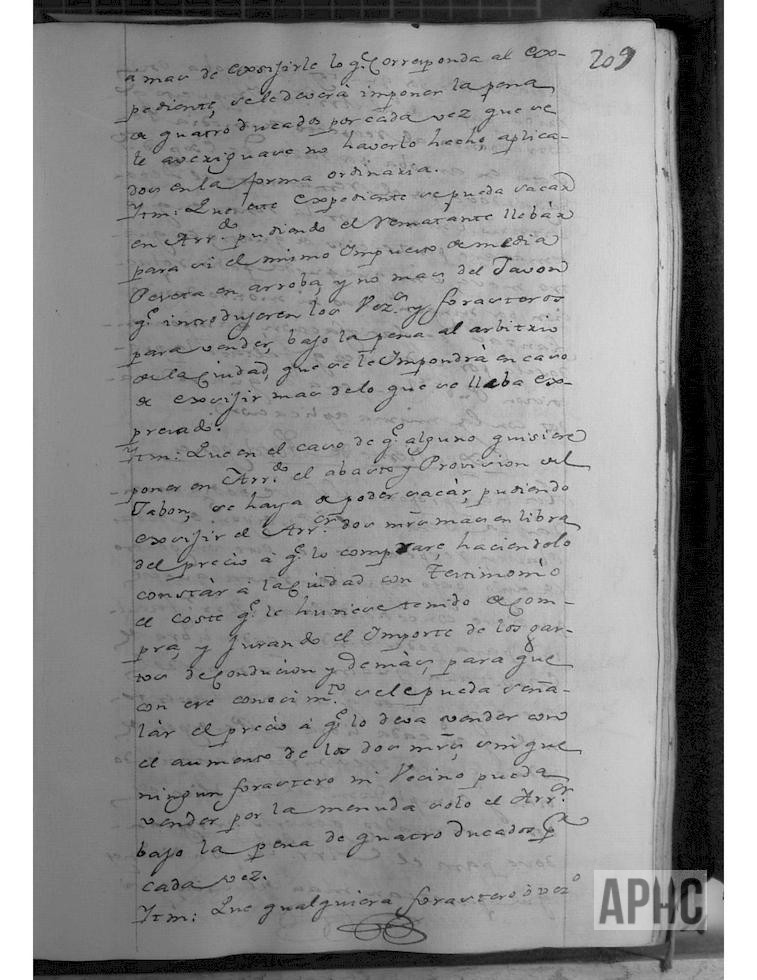 209
à mas de exsijirle lo q.e Corresponda al ex-
pediente, se le deverà imponer la pena
de quatro ducados por cada vez que se
le averiguase no haverlo hecho, aplica-
dos en la forma ordinaria.
Itm: Que este expediente se pueda sacar
en Arr.do pudiendo el Rematante llebàr
para si el mismo Impuesto de media
Peseta en arroba, y no mas, del Javon
q.e introdujeren los Vez.s y forasteros
para vender, bajo la pena al arbitrio
de la Ciudad, que se le Impondrà en caso
de exsijir mas de lo que se lleba ex-
presado.
Itm: Que en el caso de q.e alguno quisiere
poner en Arr.do el abasto y Provision del
Jabon, se haya de poder sacàr, pudiendo
exsijir el Arr.or dos mrs mas en libra
del precio à q.e lo comprare, haciendolo
constàr à la Ciudad con Testimonio
el coste q.e le huviese tenido de com-
pra, y Jurando el Importe de los gas-
tos de Conducion y demàs, para que
con ese conocim.to se le pueda señà-
làr el precio à q.e lo deva vender con
el aumento de los dos mrs, sin que
ningun forastero ni Vecino pueda
vender por la menuda solo el Arr.or
bajo la pena de quatro ducados p.r
cada vez.
Itm: Que qualquiera forastero ò vez.o
APHC